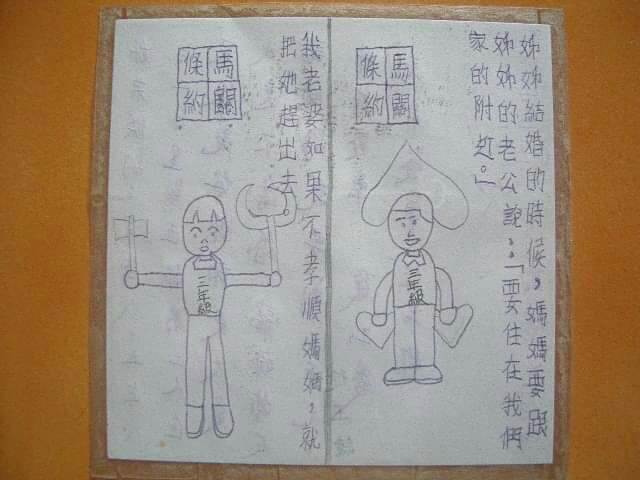 姊姊結婚的時候，媽媽要跟
姊姊的老公說：「要住在我們
家的附近。」
馬關
條約
三年級
我老婆如果不孝順媽媽，就
把她趕出去
馬關
條約
二年級